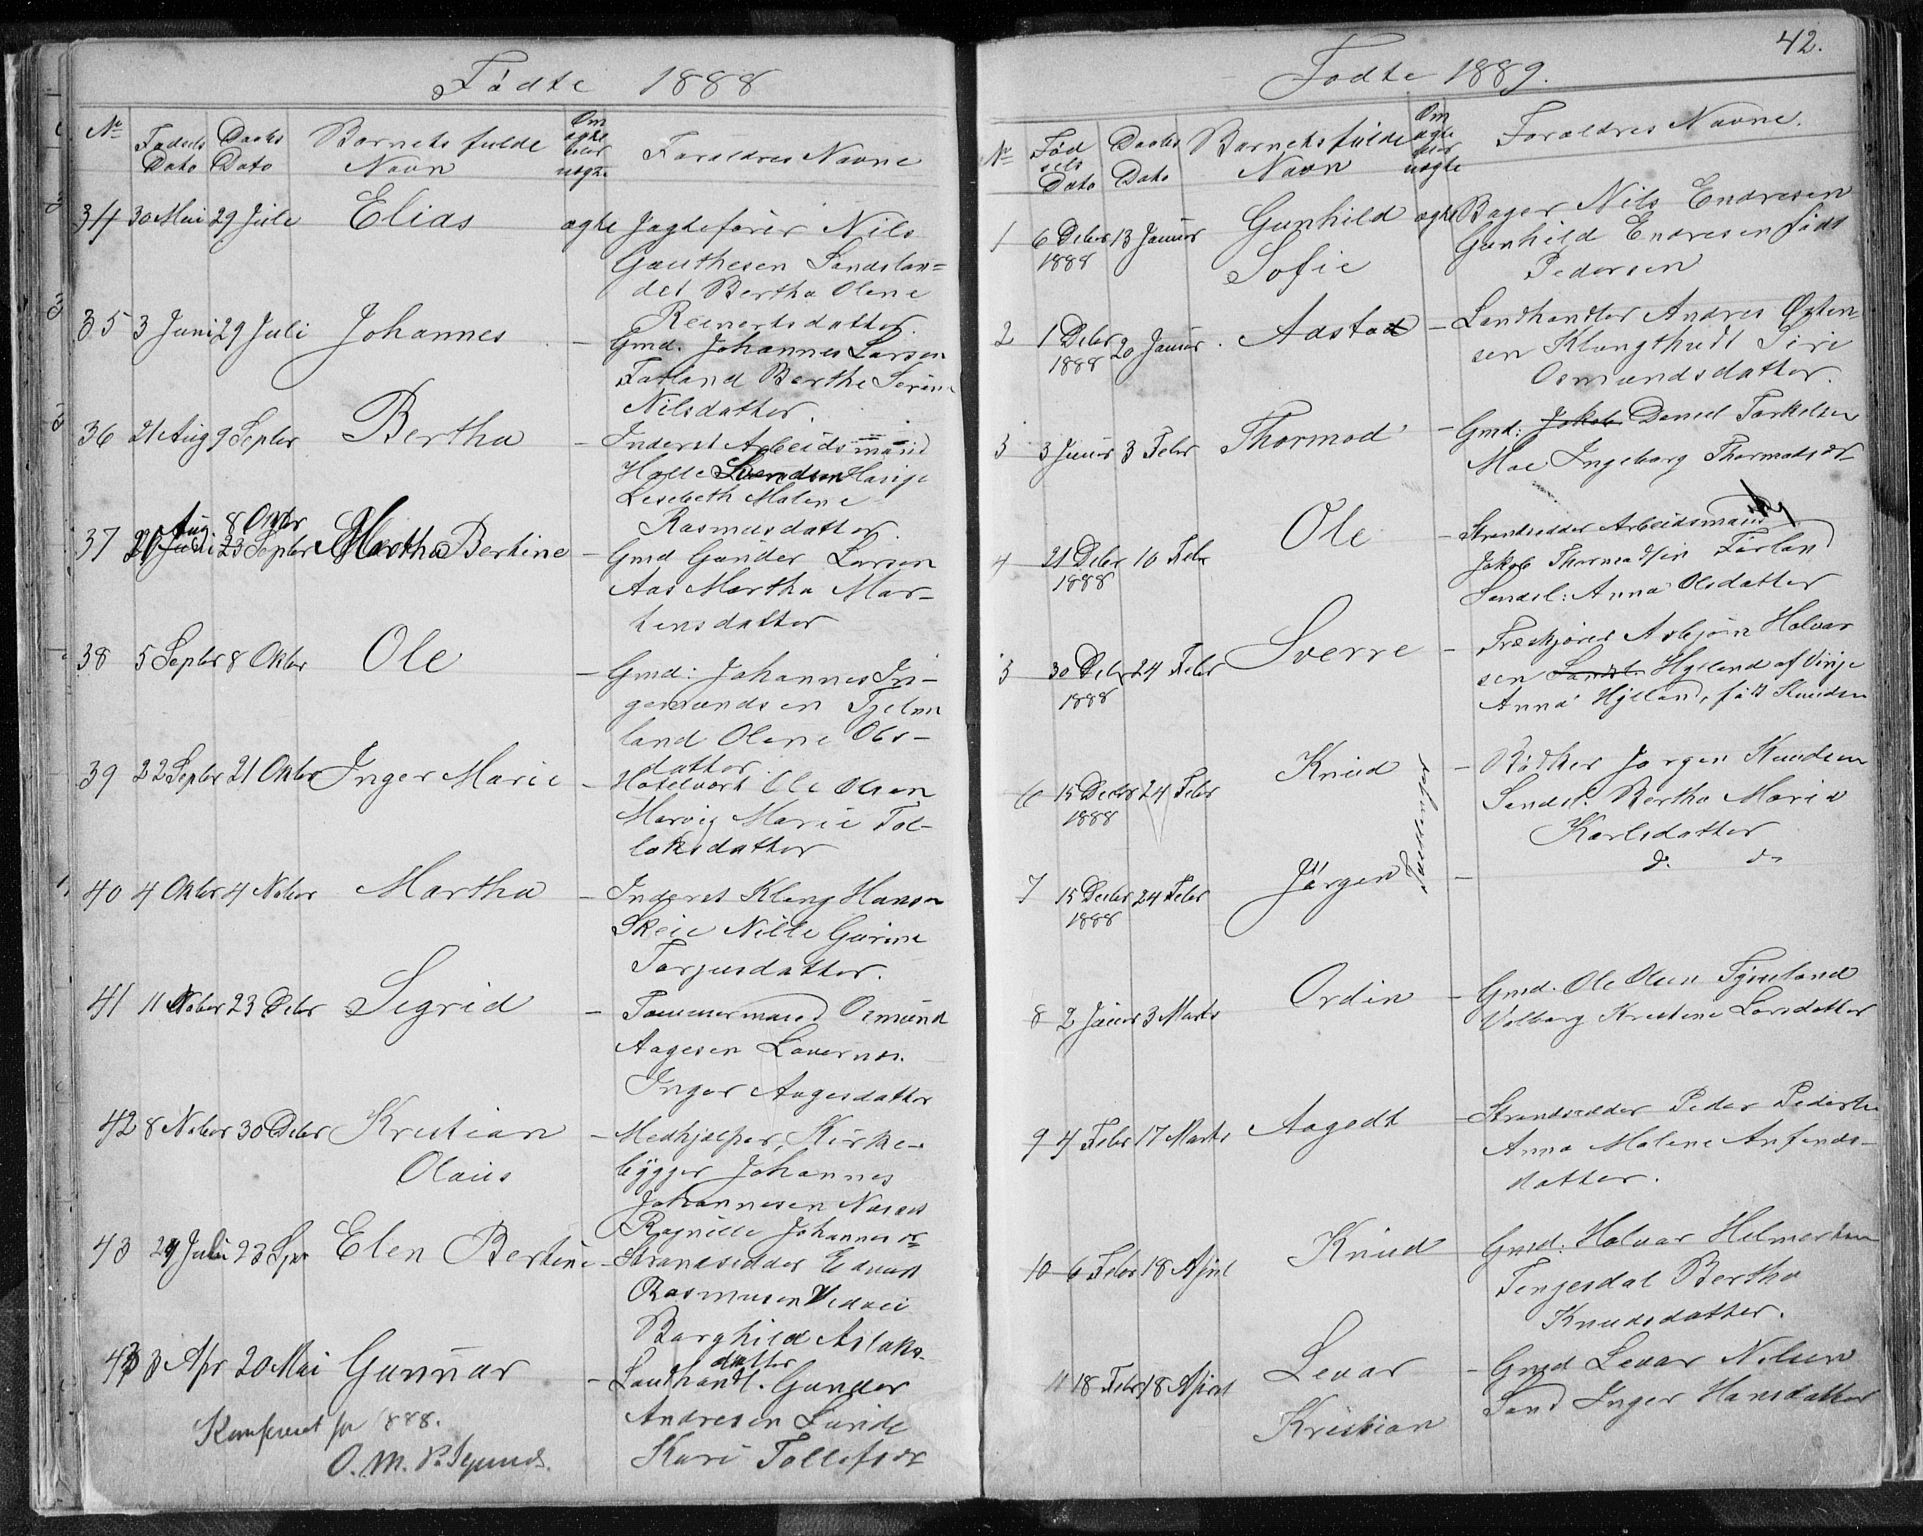 Fødte 1888
No
Fødsels
Dato
Daabs
Dato
Barnets fulde
Navn
Om
ægte
eller
uægte
Forældres Navne
34 30 Mai 29 Juli Elias ægte Jagtefører Nils
Gauthesen Sandslan=
det Bertha Olene
Reinertsdatter.
35 3 Juni 29 Juli Johannes - Gmd. Johannes Larsen
Farland Berthe Serine
Nilsdatter.
36 21 Aug 9 Septbr Bertha - Inderst Arbeidsmand
Halle Svendsen
Lisebeth Malene
Rasmusdatter
Aug. 8 Oktbr
37 23 Septbr Martha Bertine - Gmd Gunder Larsen
Aas Martha Mar-
tensdatter
38 5 Septbr 8 Oktbr Ole - Gmd: Johannes In-
gemundsen Tjelm
land Olene Ols-
datter.
39 22 Septbr 21 Oktbr Inger Marie - Hotelvært Ole Olsen
Marvig Marie Tol-
laksdatter
40 4 Oktbr 4 Novbr Martha - Inderst Kleng Hansen
Skeie Nille Gurine
Torjusdatter.
41 11 Novbr 23 Debr Sigrid - Tømmermand Osmund
Aagesen Lovernes.
Inger Aagesdatter
42 8 Novbr 30 Debr Kristian - Medhjælper, Kirke-
Olaus
bygger Johannes
Johannesen
Ragnille Johannesdr
43 24 Juli 23 Spr Elen Bertine - Strandsidder Edvard
Rasmusen
Borghild Aslaks-
datter
43 3 Apr 20 Mai Gunnar - Landhandl. Gunder
Andresen
Kari Tollefsdr
Konfereret for 1888.
O. M.
42.
Fødte 1889.
No
Fød
sels
Dato
Daabs
Dato
Barnets fulde
Navn
Om
ægte
eller
uægte
Forældres Navne.
1 6 Debr 13 Januar Gunhild ægte Bager Nils Endresen
1888 Sofie Gunhild Endresen født
Pedersen
2 1 Debr 20 Januar. Aasta - Landhandler Andres Østen-
1888 sen Klungtvedt Siri
Osmundsdatter.
3 3 Januar 3 Febr Thormod - Gmd: Jakob Daniel Torkelsen
Moe Ingeborg Thormodsdr
4 21 Debr 10 Febr Ole - Strandsidder Arbeidsmand
1888 Jakob Thormodsen Førland
Sandsl: Anna Olsdatter
5 30 Debr 24 Febr Sverre - Træskjærer Asbjørn Halvar
1888 sen Sandsl. Hylland af Vinje
Anna Hylland, født Knudsen
6 15 Decbr 24 Febr Knud - Rødker Jørgen Knudsen
1888 Sandsl. Bertha Maria
Karlsdatter
7 15 Decbr 24 Febr Jørgen - do do
1888
8 2 Januar 3 Marts Ordin - Gmd. Ole Olsen Tjemland
Valborg Kristine Larsdatter
9 4 Febr 17 Marts Aagodt - Strandsidder Peder Pedersen
Anna Malene Anfinds-
datter.
10 6 Febr 18 April Knud Gmd: Halvar Helmersen
Tengesdal Bertha
Knudsdatter.
11 18 Febr 18 April Levar - Gmd Levar Nilsen
Kristian Sand Inger Hansdatter